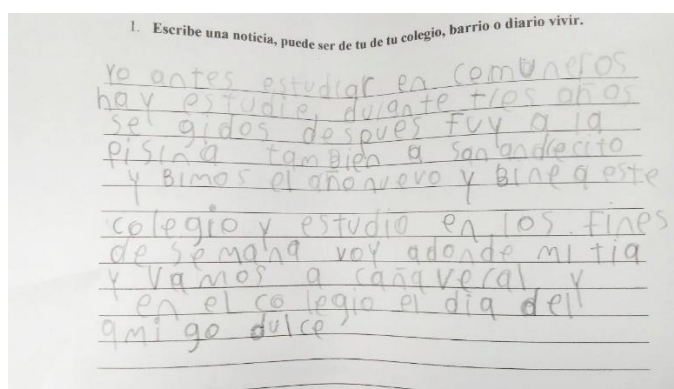 1. Escribe una noticia, puede ser de tu de tu colegio, barrio o diario vivir.
yo antes estudiar en comuneros
hay estudie, durante tres años
se gidos despues fuy a la
pisina tambien a san andrecito
y Bimos el año nuevo y Bine a este
colegio y estudio en los fines
de semana voy adonde mi tia
y vamos a cañaveral y
en el co legio el dia dell
ami go dulce